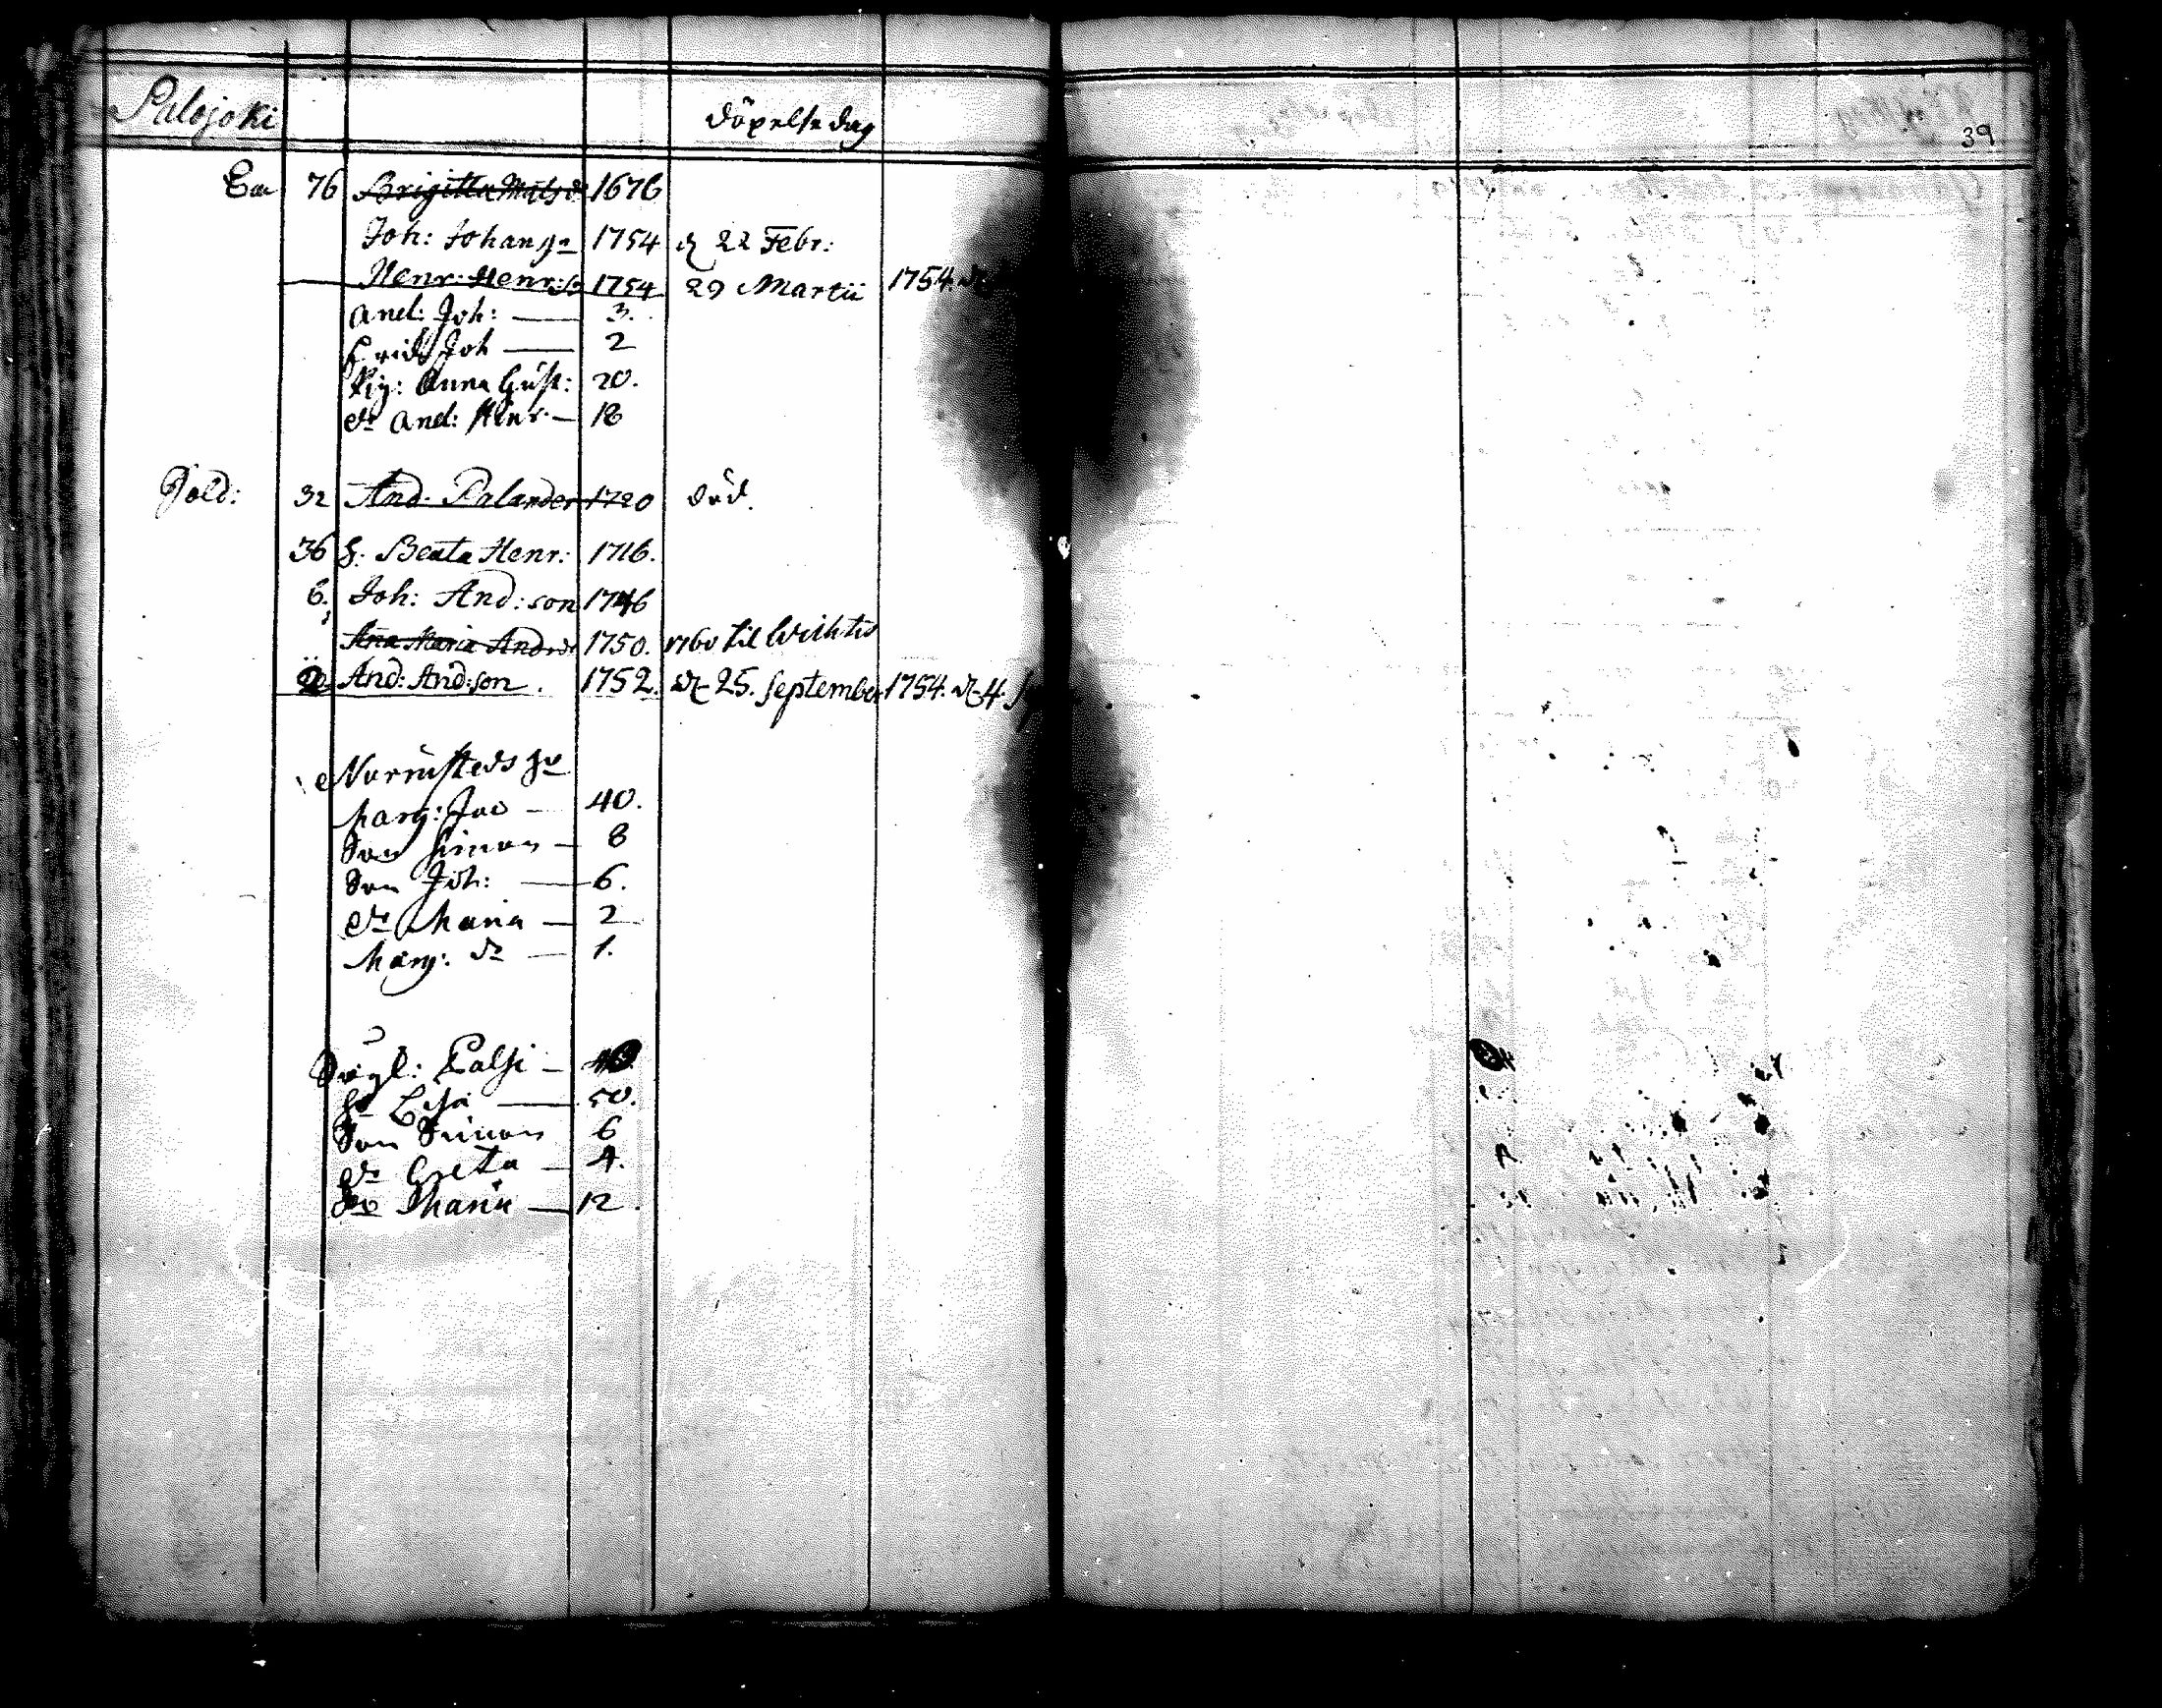 Palojoki döpelse dag
39
Ea 76 Brigitta Mats d: 1676
Joh: Johan sn 1754 d 22 Febr:
Henr: Henr: so 1754 29 Martii 1754. d
And: Joh: — 3.
Erich Joh — 2
Pig: Anna Gust: 20.
dr And: Henr — 18
Sold: 32 And: Palander 1720 död.
36 h: Beata Henr: 1716.
6. Joh: And:son 1746
Ana Maria And: dr 1750. 1760 til Wichtis
2 And: And:son. 1752. d. 25. September 1754. d. 4.
hu
Marg: Jac — 40.
Son Simon — 8
Son Joh: — 6.
dr Maria — 2
Marg: dr — 1.
Palsi —
hu Lisa — 50.
Son Simon 6
dr Greta — 4.
Maria — 12.